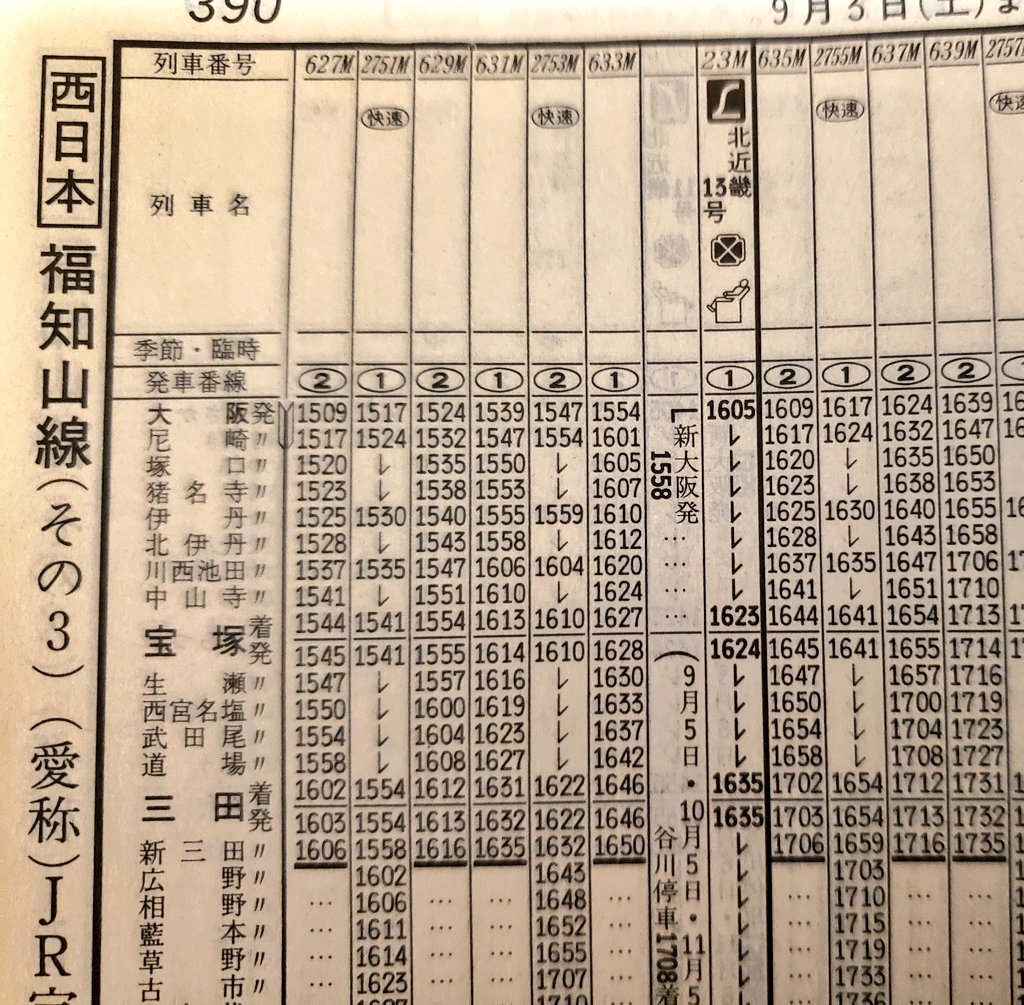 390
9月3日(土)ま
西日本 福知山線(その3) (愛称)JR宝
列車番号 627M 2751M 629M 631M 2753M 633M 23M 635M 2755M 637M 639M 2757
快速 快速 快速 快速
列車名 北近畿13号
季節・臨時
発車番線 ② ① ② ① ② ① ① ② ① ② ②
大阪発 1509 1517 1524 1539 1547 1554 1605 1609 1617 1624 1639 16
尼崎〃 1517 1524 1532 1547 1554 1601 レ 1617 1624 1632 1647 16
塚口〃 1520 レ 1535 1550 レ 1605 レ 1620 レ 1635 1650
猪名寺〃 1523 レ 1538 1553 レ 1607 レ 1623 レ 1638 1653
伊丹〃 1525 1530 1540 1555 1559 1610 レ 1625 1630 1640 1655 16
北伊丹〃 1528 レ 1543 1558 レ 1612 … レ 1628 レ 1643 1658
川西池田〃 1537 1535 1547 1606 1604 1620 … レ 1637 1635 1647 1706 17
中山寺〃 1541 レ 1551 1610 レ 1624 … レ 1641 レ 1651 1710
宝塚着 1544 1541 1554 1613 1610 1627 … 1623 1644 1641 1654 1713 17
発 1545 1541 1555 1614 1610 1628 1624 1645 1641 1655 1714 17
生瀬〃 1547 レ 1557 1616 レ 1630 レ 1647 レ 1657 1716
西宮名塩〃 1550 レ 1600 1619 レ 1633 レ 1650 レ 1700 1719
武田尾〃 1554 レ 1604 1623 レ 1637 レ 1654 レ 1704 1723
道場〃 1558 レ 1608 1627 レ 1642 レ 1658 レ 1708 1727
三田着 1602 1554 1612 1631 1622 1646 1635 1702 1654 1712 1731
発 1603 1554 1613 1632 1622 1646 1635 1703 1654 1713 1732
新三田〃 1606 1558 1616 1635 1632 1650 レ 1706 1659 1716 1735
広野〃 1602 1643 レ 1703
相野〃 … 1606 … … 1648 … レ … 1710 … …
藍本〃 … 1611 … … 1652 … レ … 1715 … …
草野〃 … 1614 … … 1655 … レ … 1719 … …
古市〃 … 1623 … … 1707 … レ … 1733 … …
新大阪発 1558
(9月5日・10月5日・11月5
谷川停車 1708着